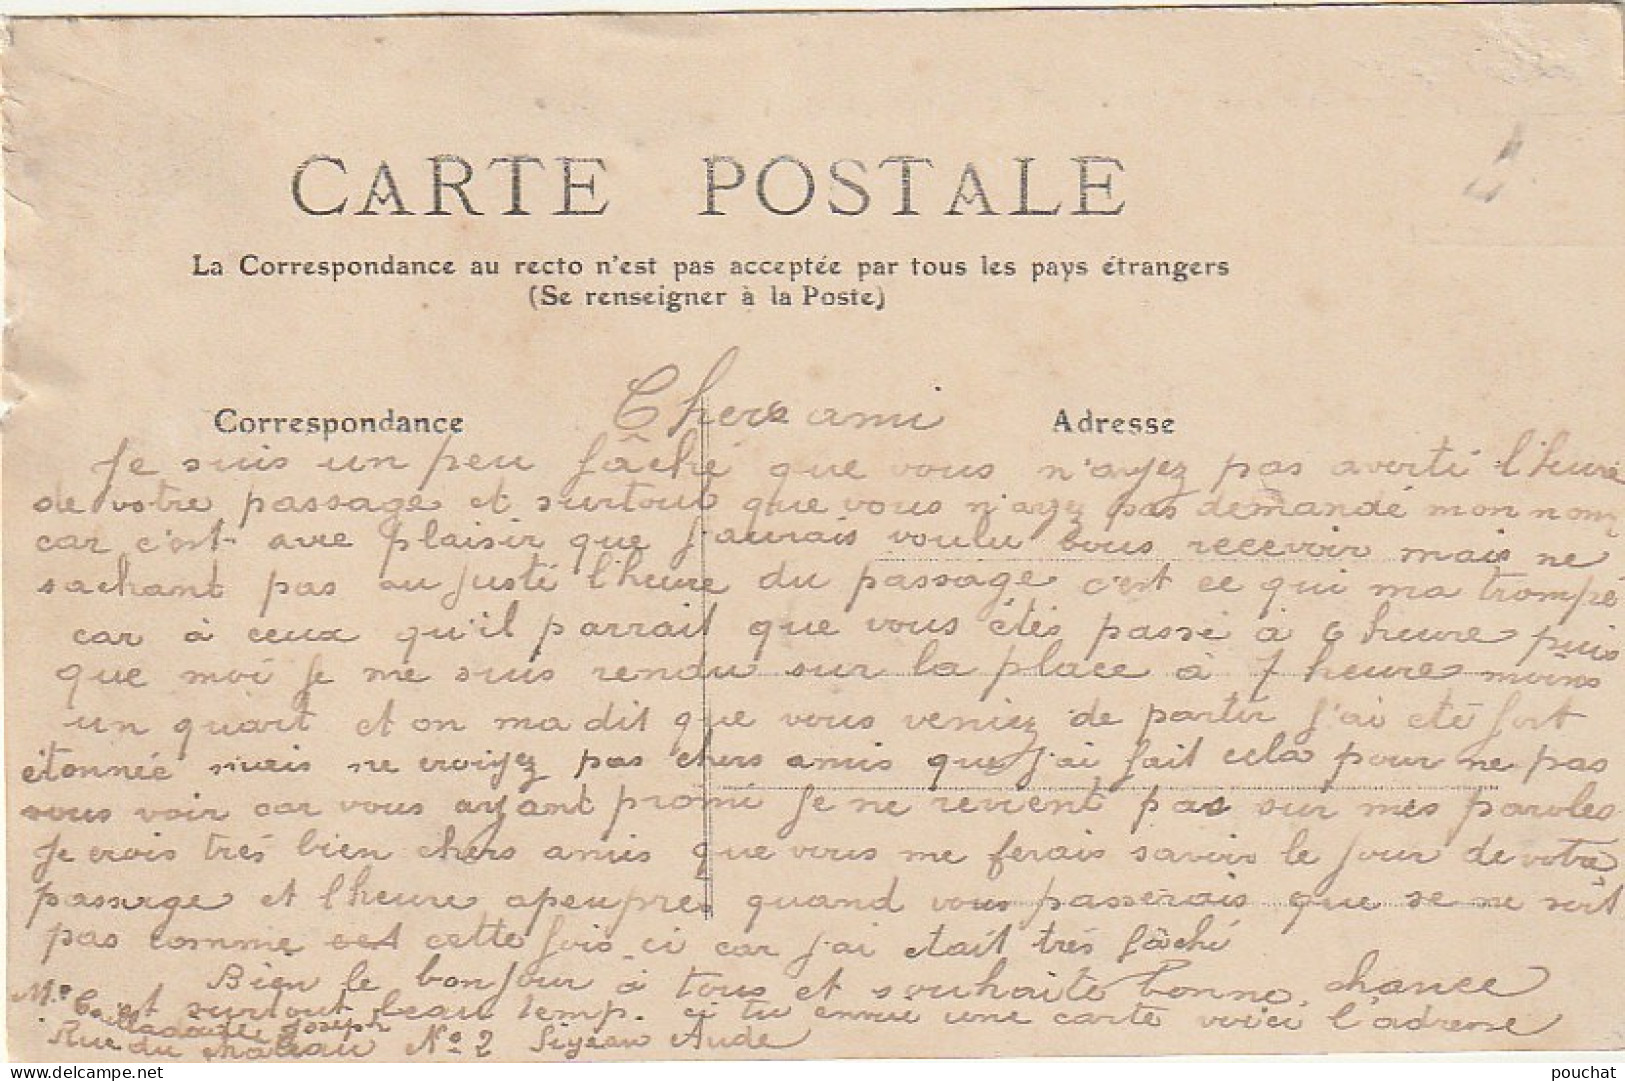 CARTE POSTALE
La Correspondance au recto n'est pas acceptée par tous les pays étrangers
(Se renseigner à la Poste)
Correspondance
Adresse
Chers ami
Je suis un peu fâché que vous n'ayez pas averti l'heure
de votre passage et surtout que vous n'ayez pas demandé mon nom
car c'est avre plaisir que j'aurais voulu vous recevoir mais ne
sachant pas au justé l'heure du passage c'est ce qui ma trompé
car à ceux qu'il parrait que vous étés passé à 6 heure puis
que moi je me suis rendu sur la place à 7 heures moins
un quart et on ma dit que vous veniez de partir j'ai été fort
étonnée mais ne croiyez pas chers amis que j'ai fait cela pour ne pas
vous voir car vous ayant promi je ne revient pas sur mes paroles
Je crois trés bien chers amis que vous me ferais savoir le jour de votre
passage et l'heure apeuprés quand vous passerais que se ne soit
pas comme cet cette fois ci car j'ai était trés fâché
Bien le bonjour à tous et souhaite bonne chance
et surtout beau temp. ci tu envue une carte voici l'adresse
Mr Joseph
Rue du château No 2 Sigean Aude
pouchat